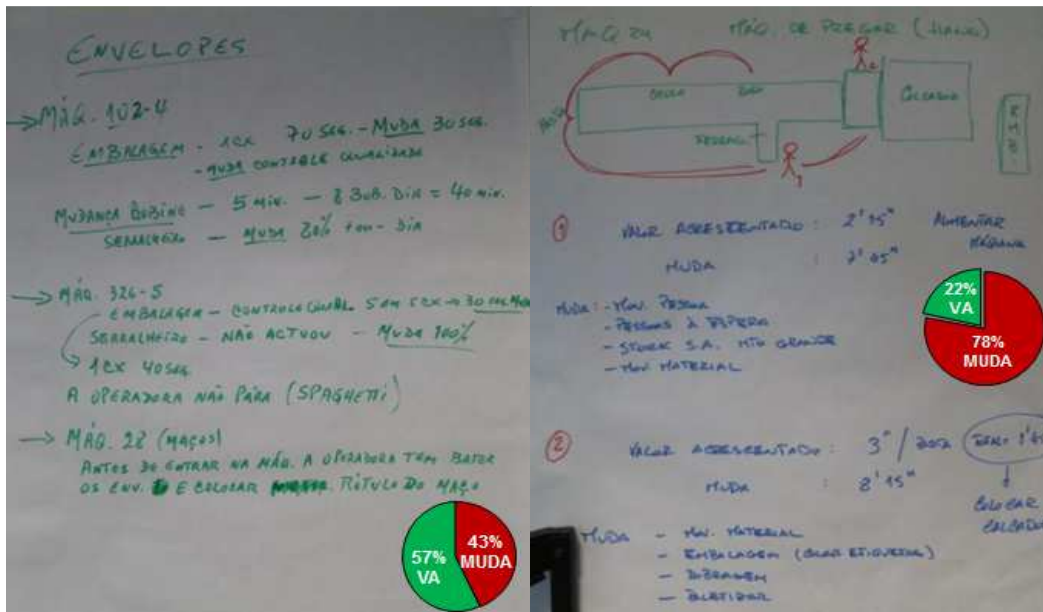 ENVELOPES
→ MÁQ. 102-4
EMBALAGEM - 1CX 70 SEG. - MUDA 30 SEG.
- MUDA CONTROLE QUALIDADE
MUDANÇA BOBINE - 5 MIN. - 8 BOB. DIA = 40 MIN.
SERRALHEIRO - MUDA 20% - DIA
→ MÁQ. 326-5
EMBALAGEM - CONTROLE QUAL. 5 EM 5 CX → 30 SEG
SERRALHEIRO - NÃO ACTUOU - MUDA 100%
1CX 40 SEG
A OPERADORA NÃO PÁRA (SPAGHETTI)
→ MÁQ. 28 (MAÇOS)
ANTES DE ENTRAR NA MÁQ. A OPERADORA TEM BATER
OS ENV. E COLOCAR RÓTULO DO MAÇO
57%
VA
43%
MUDA
MÁQ 24 MÁQ. DE PREGAR
1
VALOR ACRESCENTADO : 2' 15" ALIMENTAR
MÁQUINA
MUDA :
MUDA: - MOV. PESSOA
- PESSOAS À ESPERA
- STOCK S.A. MTO GRANDE
- MOV. MATERIAL
22%
VA
78%
MUDA
2
VALOR ACRESCENTADO : 3" /
MUDA : 8' 15"
COLOCAR
MUDA - MOV. MATERIAL
- EMBALAGEM (COLAR ETIQUETAS)
- DOBRAGEM
- PALETIZAR